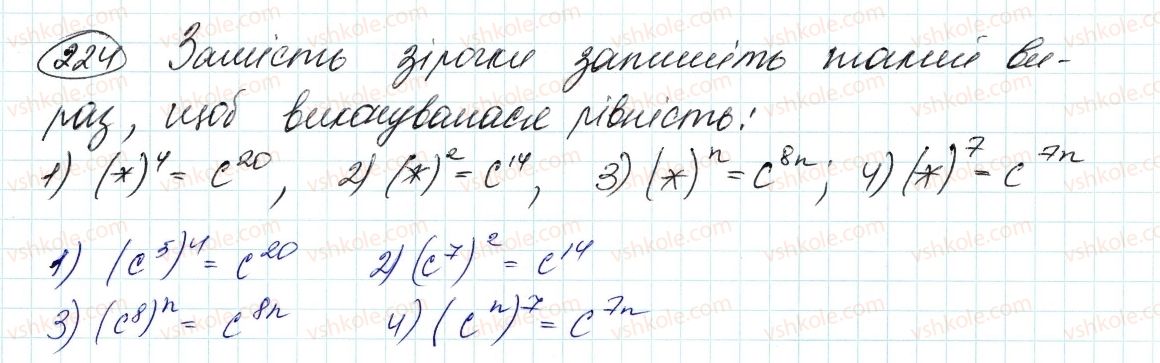 224 Замість зірочки запишіть такий ви-
раз, щоб виконувалася рівність:
1) (*)⁴ = c²⁰, 2) (*)² = c¹⁴, 3) (*)ⁿ = c⁸ⁿ; 4) (*)⁷ = c⁷ⁿ
1) (c⁵)⁴ = c²⁰ 2) (c⁷)² = c¹⁴
3) (c⁸)ⁿ = c⁸ⁿ 4) (cⁿ)⁷ = c⁷ⁿ
vshkole.com